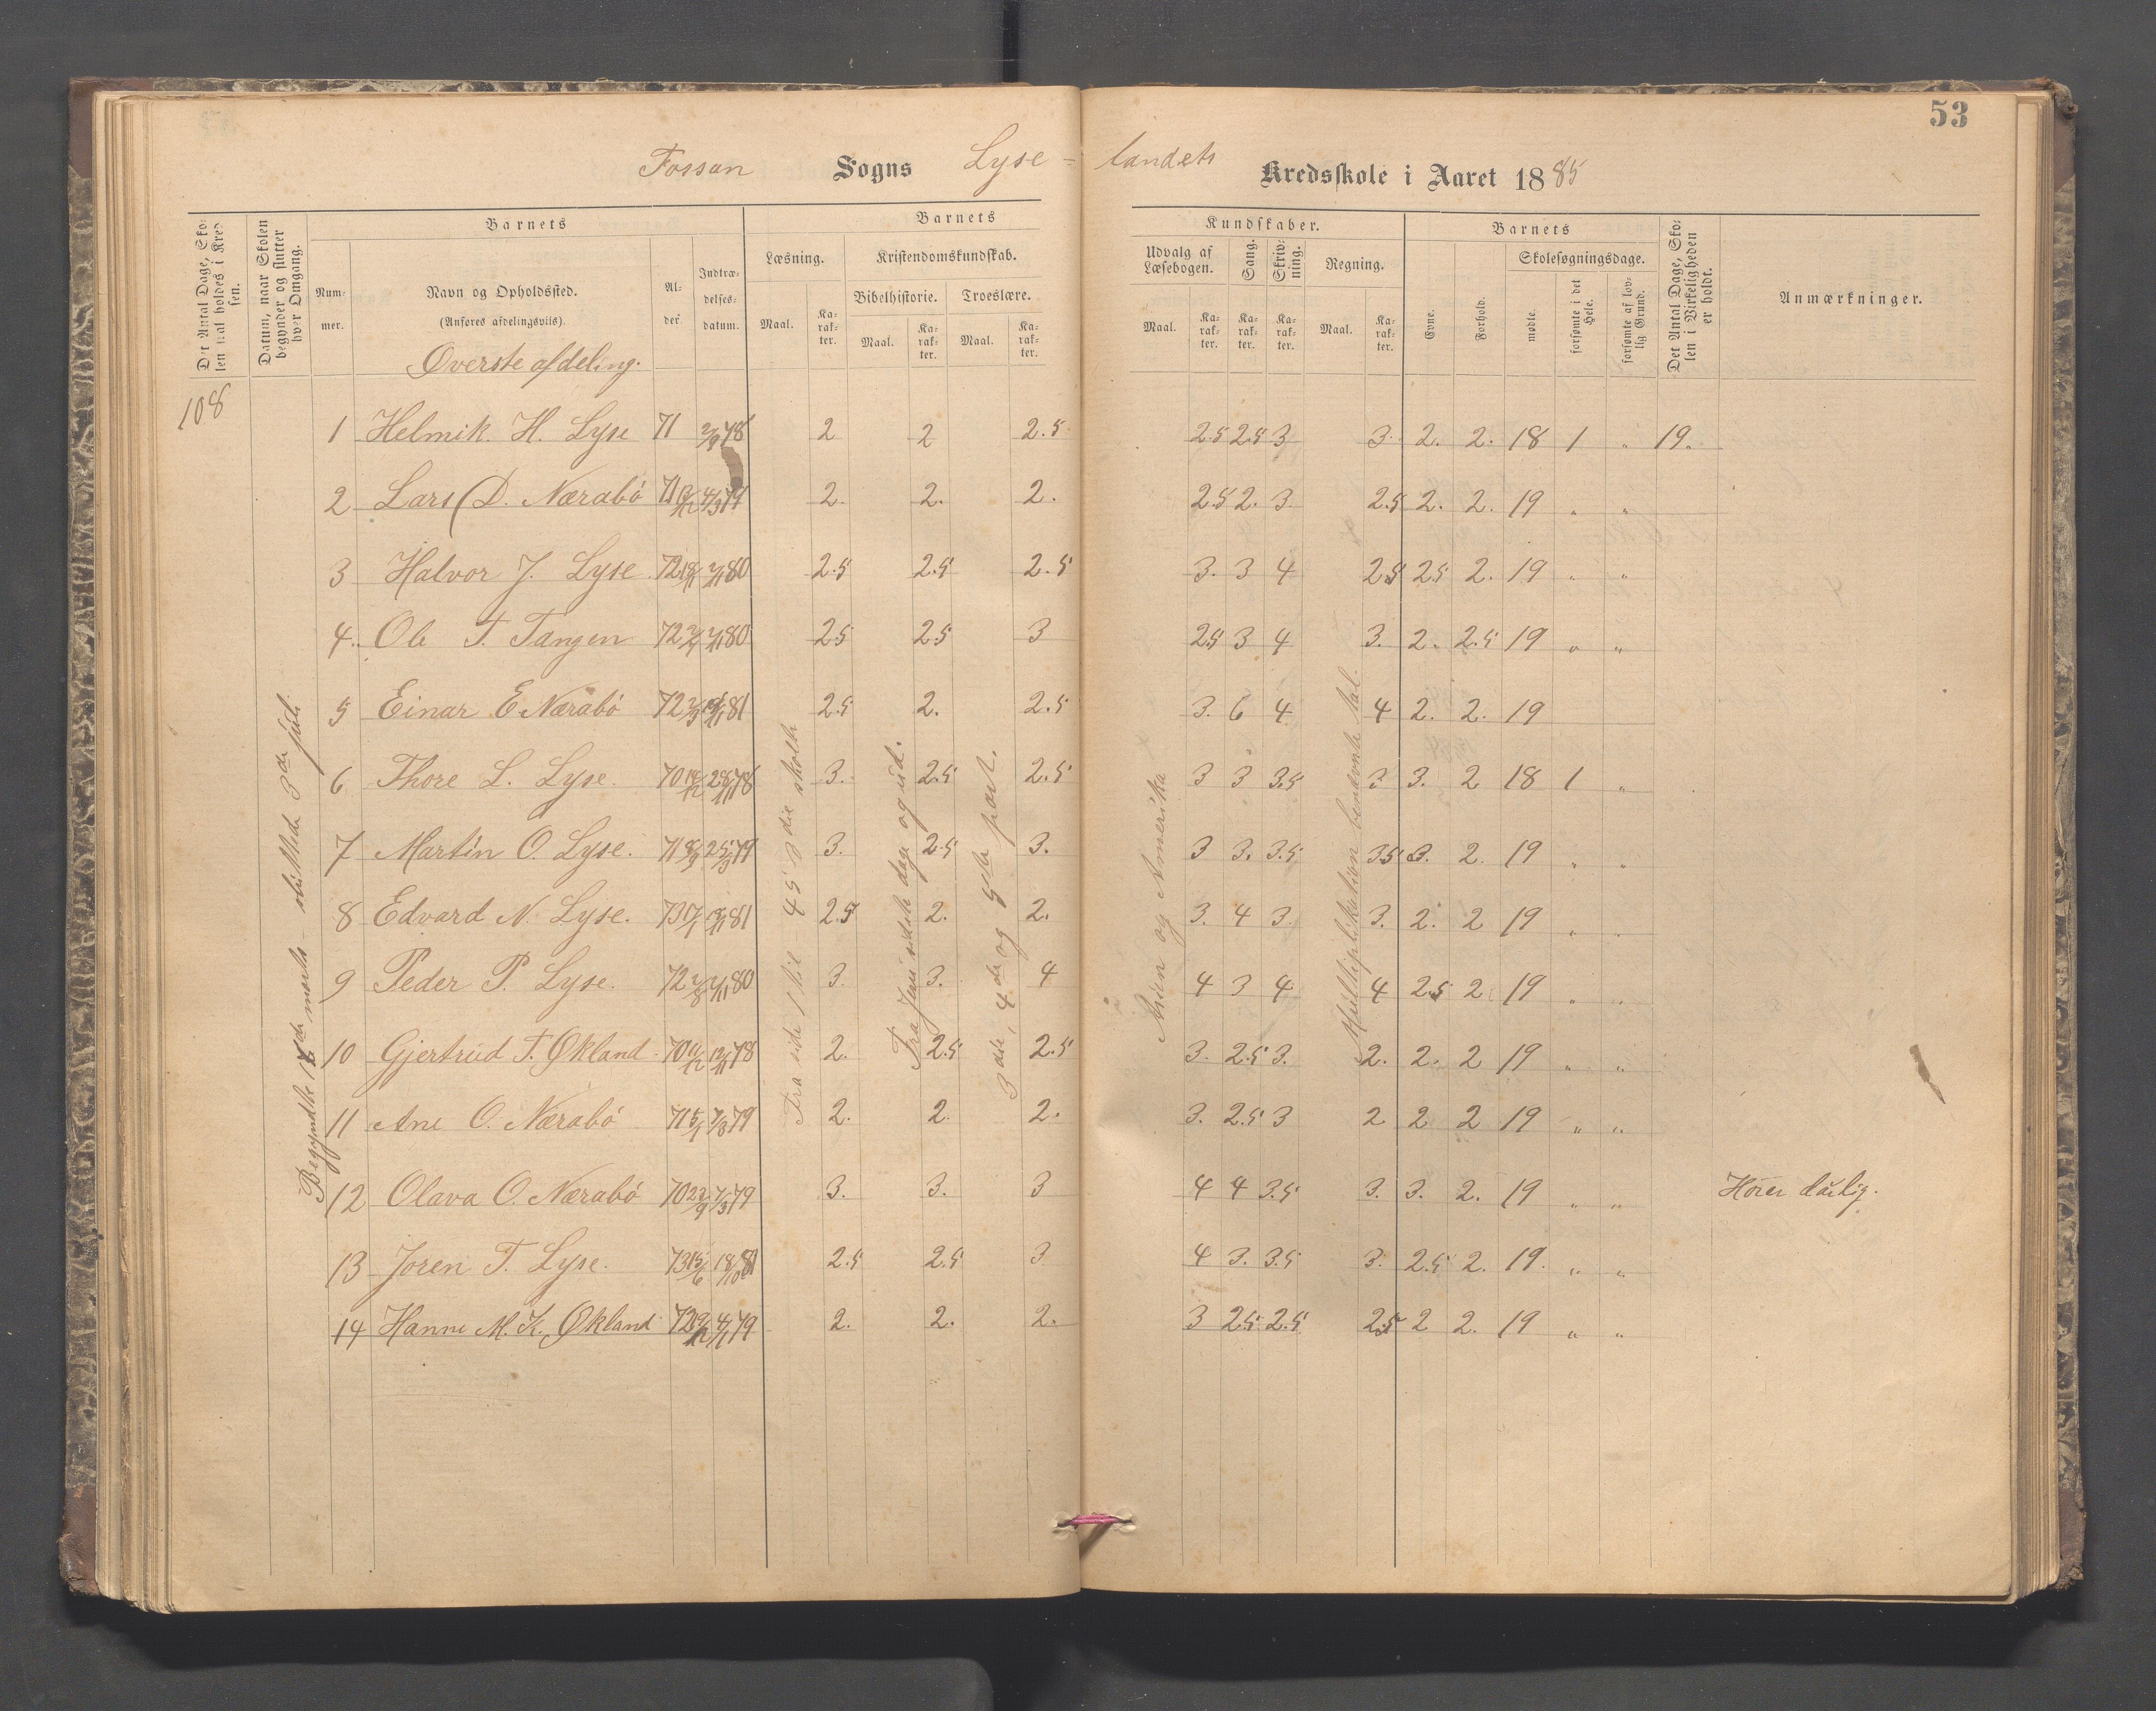 53
Fossan Sogns Lyse = landets Kredsskole i Aaret 1885
Det Antal Dage, Skolen skal holdes i Kredsen.
Datum, naar Skolen begynder og slutter hver Omgang.
Barnets
Nummer.
Navn og Opholdssted.
(Anføres afdelingsviis).
Alder.
Indtrædelsesdatum.
Barnets
Læsning.
Maal.
Karakter.
Kristendomskundskab.
Bibelhistorie.
Maal.
Karakter.
Troeslære.
Maal.
Karakter.
Kundskaber.
Udvalg af Læsebogen.
Maal.
Karakter.
Sang.
Karakter.
Skrivning.
Karakter.
Regning.
Maal.
Karakter.
Barnets
Evne.
Forhold.
Skolesøgningsdage.
mødte.
forsømte i det Hele.
forsømte af lovlig Grund.
Det Antal Dage, Skolen i Virkeligheden er holdt.
Anmærkninger.
Øverste afdeling.
108
1 Helmik. H. Lyse 71 2/9 78 2 2 2.5 2.5 2.5 3 3. 2. 2. 18 1 " 19.
2 Lars D. Nærabø 71 4/3 79 2. 2. 2. 2.5 2. 3. 2.5 2. 2. 19 " "
3 Halvor J. Lyse 72 80 2.5 2.5 2.5 3. 3 4 2.5 2.5 2. 19 " "
4. Ole T. Tangen 72 80 2.5 2.5 3 2.5 3 4 3. 2. 2.5 19 " "
5 Einar E Nærabø 72 81 2.5 2. 2.5 3. 6 4 4 2. 2. 19
6 Thore L. Lyse. 70 28/11 78 3. 2.5 2.5 3 3 3.5 3 3. 2 18 1 "
7 Martin O. Lyse. 71 25/3 79 3. 2.5 3. 3 3. 3.5 3.5 3. 2. 19 " "
8 Edvard N. Lyse. 73 81 2.5 2. 2. 3. 4 3. 3. 2. 2 19 " "
9 Peder P. Lyse. 72 80 3. 3. 4 4 3 4 4 2.5 2 19 " "
10 Gjertrud T. Økland. 70 12/11 78 2. 2.5 2.5 3. 2.5 3. 2. 2. 2 19 " "
11 Ane O. Nærabø 71 7/3 79 2. 2. 2. 3. 2.5 3 2 2 2 19 " "
12 Olava O. Nærabø 70 7/3 79 3. 3. 3 4 4 3.5 3. 3. 2. 19 " " Hører dårlig.
13 Joren T. Lyse. 73 15/6 18/10 81 2.5 2.5 3 4 3. 3.5 3. 2.5 2. 19. " "
14 Hanne M. K. Økland 72 79 2. 2. 2. 3 2.5 2.5 2.5 2 2. 19 " "
Fra side 1 til 45
Fra Jesu sidste dage og ud.
3die, 4de og 5te part.
Asien og Amerika
Multiplikation benævnte tal.